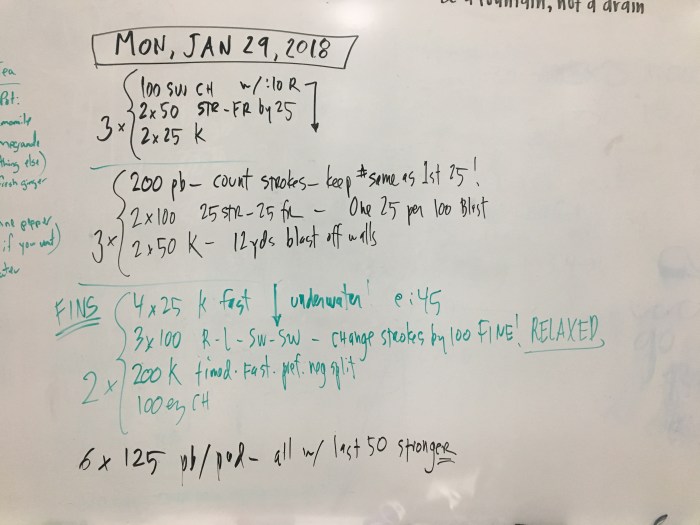 a fountain, not a drain
MON, JAN 29, 2018
3x
100 SW CH w/:10 R
2x50 STR-FR by 25
2x25 K
3x
200 pb- count strokes- keep # same as 1st 25!
2x100 25 STR-25 fr - One 25 per 100 Blast
2x50 K- 12yds blast off walls
FINS
2x
4x25 K fast ↓ underwater! @:45
3x100 R-L-SW-SW - change strokes by 100 FINE! RELAXED
200 K timed. Fast. pref. neg split
100 ez CH
6x125 pb/pad- all w/ last 50 stronger
ea
Pot:
thing else)
fresh ginger
pepper
if you want)